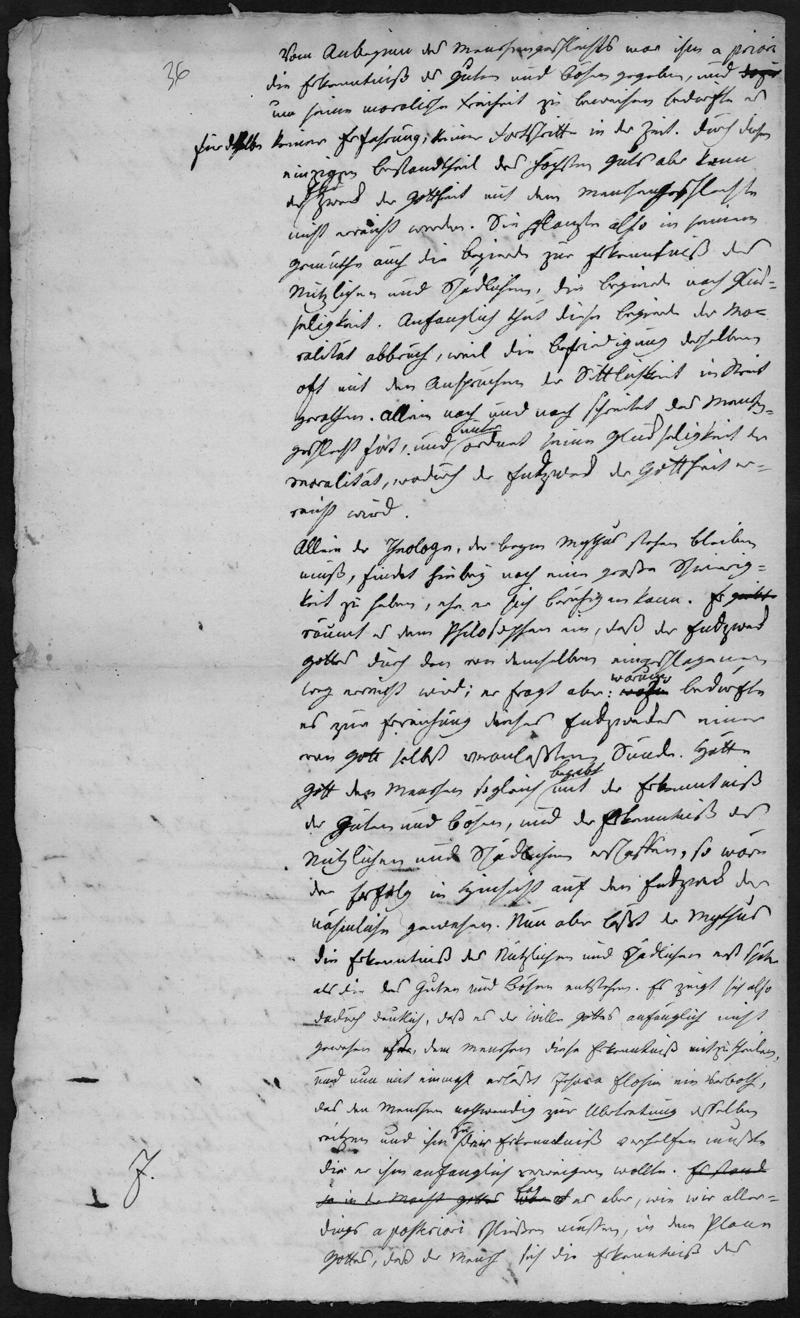 36
Vom Anbeginn des Menschengeschlechts war ihm a priori
die Erkenntniß des Guten und Bösen gegeben, und dazu
um seine moralische Freiheit zu beweisen bedurfte es
für dasselbe keiner Erfahrung, keiner Fortschritte in der Zeit. Durch diesen
einzigen Bestandtheil des höchsten Guts aber kann
der Zweck der Gottheit mit dem Menschengeschlechte
nicht erreicht werden. Sie pflanzte also in seinem
Gemüthe auch die Begierde zur Erkenntniß des
Nützlichen und Schädlichen, die Begierde nach Glük-
seligkeit. Anfänglich thut diese Begierde der Mo-
ralität abbruch, weil die Befriedigung derselben
oft mit den Ansprüchen der Sittlichkeit in Streit
gerathen. Allein nach und nach schreitet das Mensch-
geschlecht fort, und
unter
ordnet seine Glückseligkeit der
Moralität, wodurch der Endzweck der Gottheit er-
reicht wird.
Allein der Theologe, der beym Mythus stehen bleiben
muß, findet hierbey noch eine große Schwierig-
keit zu heben, ehe er sich beruhigen kann. Er giebt
räumt es dem Philosophen ein, daß der Endzweck
Gottes durch den von demselben eingeschlagenen
Weg erreicht wird; er fragt aber:
warum
bedurfte
es zur Erreichung dieses Endzweckes einer
von Gott selbst veranlaßten Sünde. Hätte
Gott den Menschen sogleich
begabt
mit der Erkenntniß
des Guten und Bösen, und der Erkenntniß des
Nützlichen und Schädlichen erschaffen, so wäre
der Erfolg in Hinsicht auf den Endzweck der
nähmliche gewesen. Nun aber läßt der Mythus
die Erkenntniß des Nützlichen und Schädlichen erst später
als die des Guten und Bösen entstehen. Es zeigt sich also
dadurch deutlich, daß es der Wille Gottes anfänglich nicht
gewesen, dem Menschen diese Erkenntniß mitzutheilen,
und nun mit einmahl erläßt Jehova Elohim ein Verboth,
das den Menschen nothwendig zur Übertretung desselben
reitzen und ihm zu der Erkenntniß verhelfen mußte
die er ihm anfänglich verweigern wollte. Es stand
ja in der Macht Gottes
lag
es aber, wie wir aller-
dings a posteriori schließen müssen, in dem Plane
Gottes, daß der Mensch sich die Erkenntniß des
J.